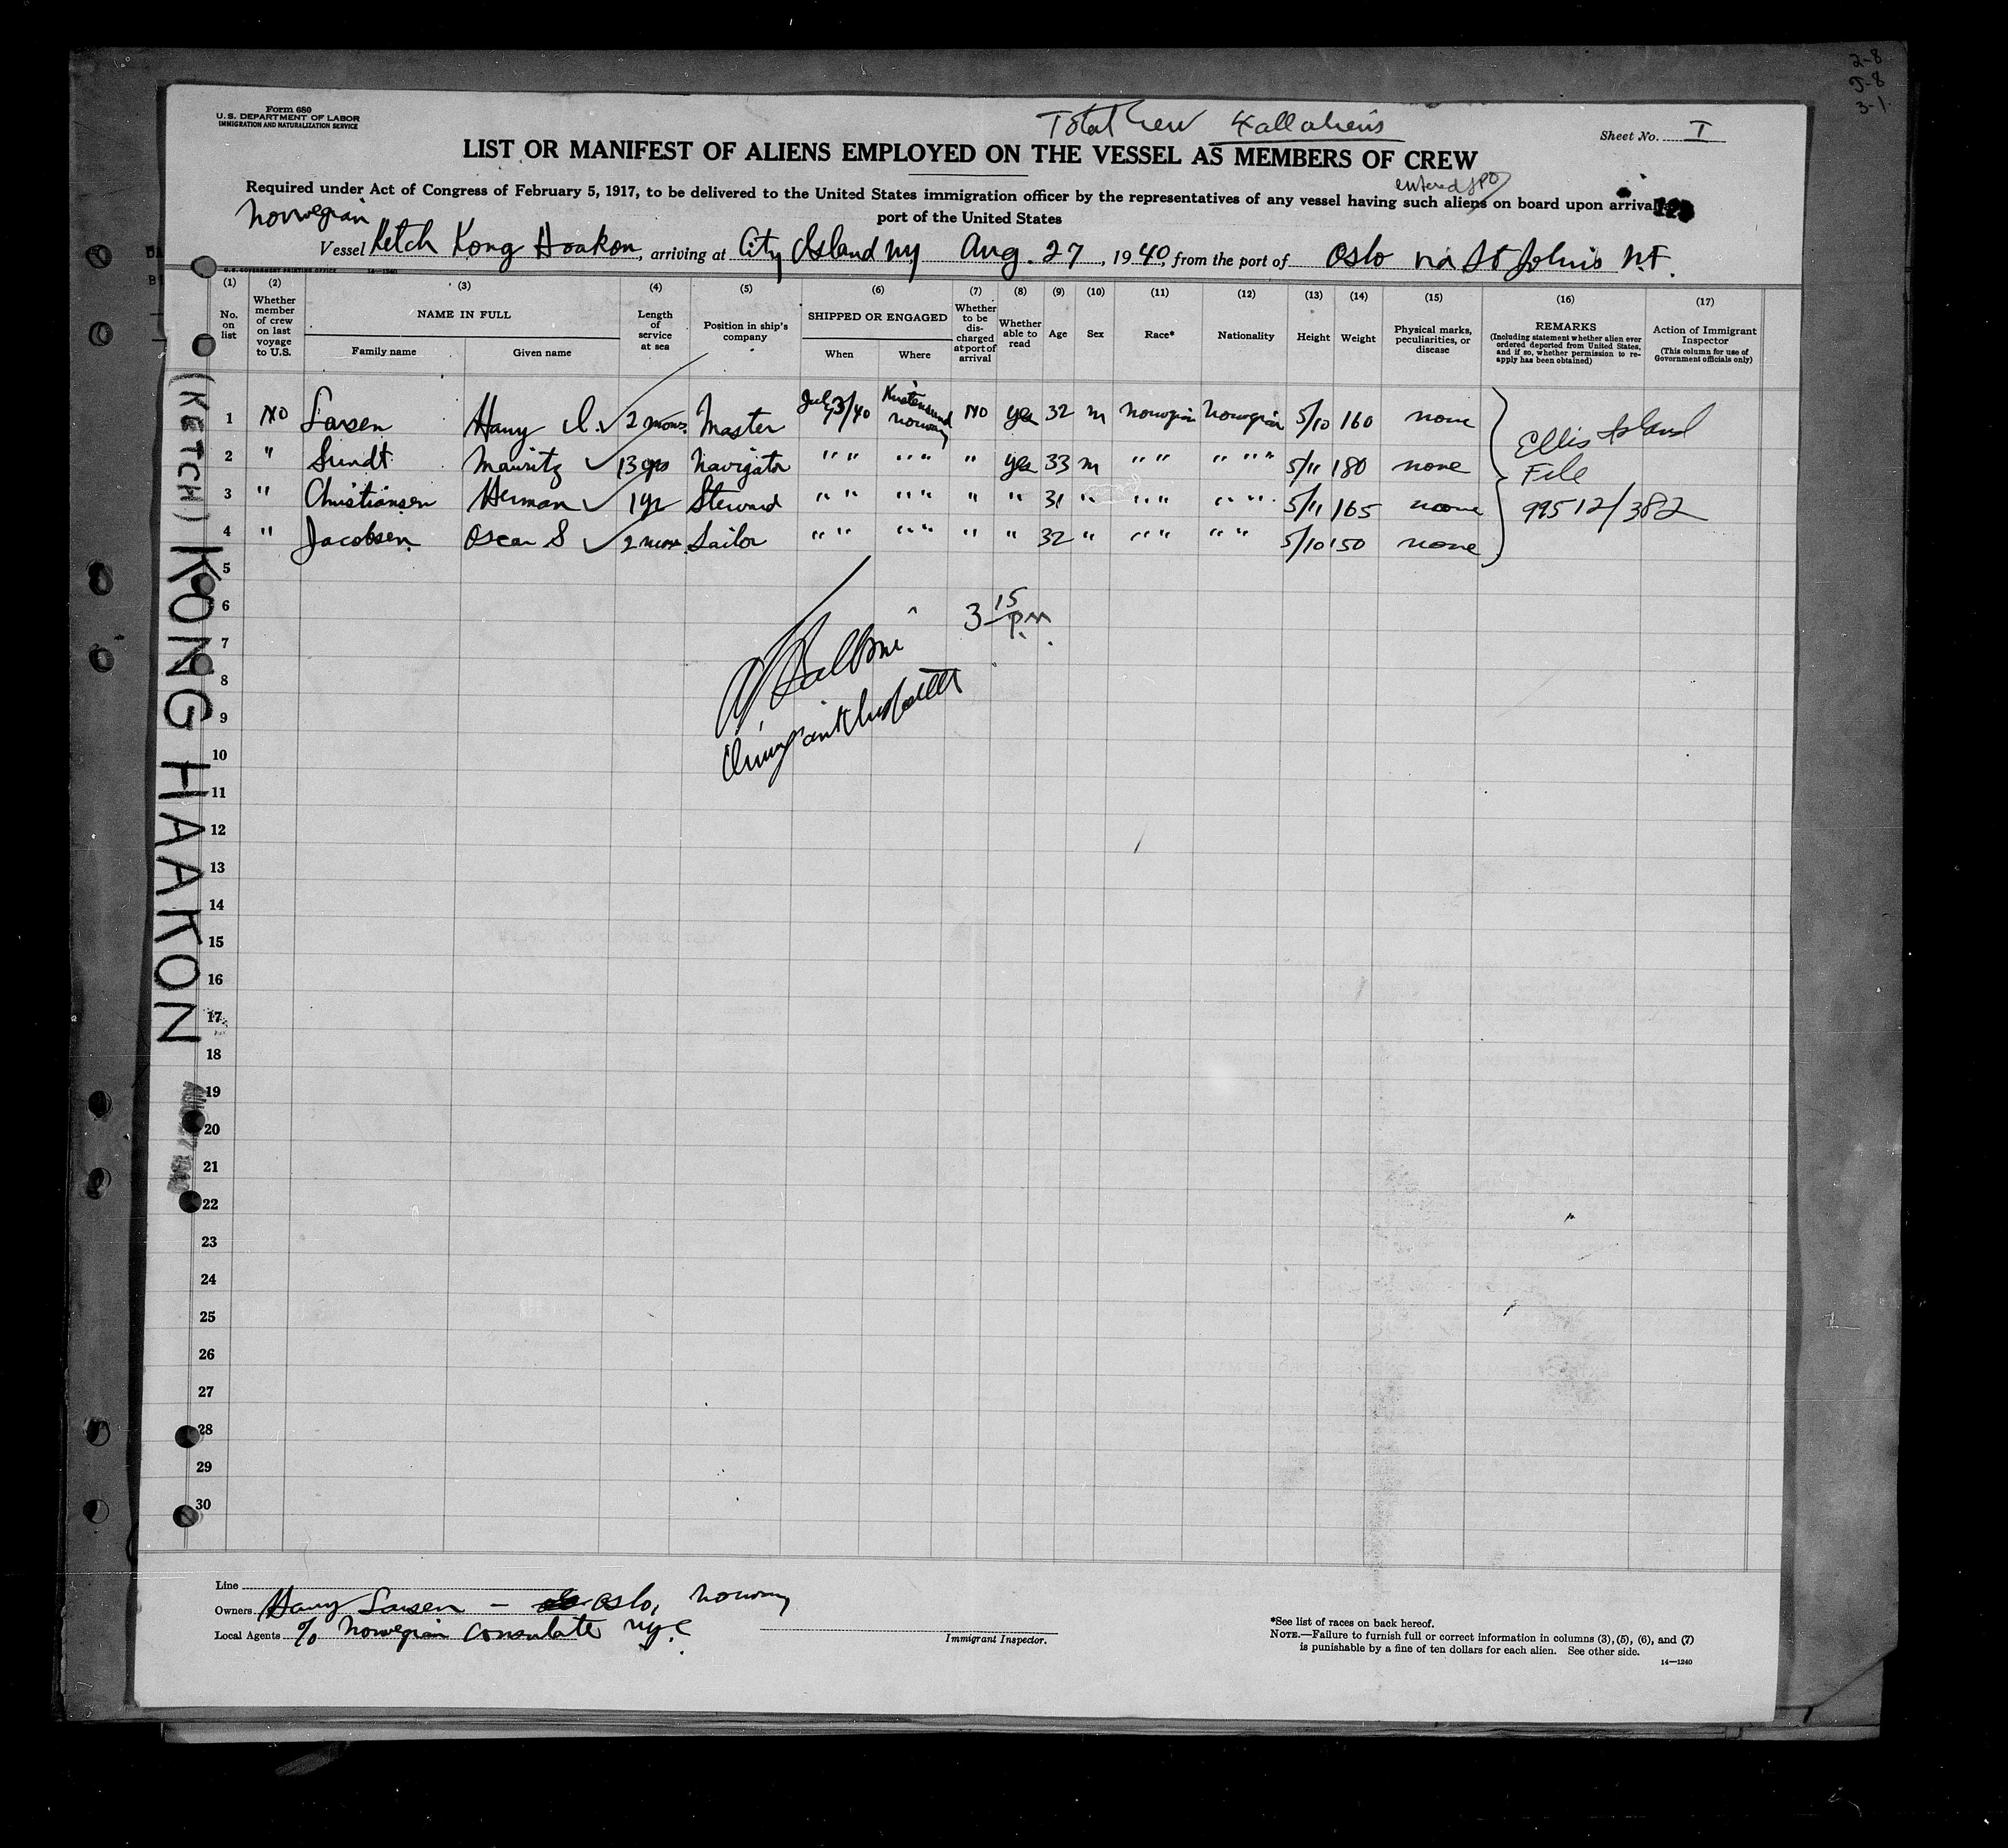 2-8
3-1
Form 680
U.S. DEPARTMENT OF LABOR
IMMIGRATION AND NATURALIZATION SERVICE
Total Crew 4 all aliens
Sheet No. I
LIST OR MANIFEST OF ALIENS EMPLOYED ON THE VESSEL AS MEMBERS OF CREW
entered
Required under Act of Congress of February 5, 1917, to be delivered to the United States immigration officer by the representatives of any vessel having such aliens on board upon arrival
port of the United States
Norwegian
Vessel Ketch Kong Haakon, arriving at City Island NY Aug. 27, 1940, from the port of Oslo via St Johns N.F.
U.S. GOVERNMENT PRINTING OFFICE 14—1240
(1) No. on list
(2) Whether member of crew on last voyage to U.S.
(3) NAME IN FULL
Family name Given name
(4) Length of service at sea
(5) Position in ship's company
(6) SHIPPED OR ENGAGED
When Where
(7) Whether to be discharged at port of arrival
(8) Whether able to read
(9) Age
(10) Sex
(11) Race*
(12) Nationality
(13) Height
(14) Weight
(15) Physical marks, peculiarities, or disease
(16) REMARKS
(Including statement whether alien ever ordered deported from United States, and if so, whether permission to reapply has been obtained)
(17) Action of Immigrant Inspector
(This column for use of Government officials only)
1 No Larsen Harry I. 2 mons. Master July 3/40 Norway No yes 32 m Norwegian Norwegian 5/10 160 none
2 " Sundt Mauritz 13 yrs Navigator " " " " " yes 33 m " " " " " 5/11 180 none
3 " Christiansen Herman 1 yr Steward " " " " " " 31 " " " " " 5/11 165 none
4 " Jacobsen Oscar S 2 mon. Sailor " " " " " " 32 " " " " " 5/10 150 none
Ellis Island
File
99512/382
5
6
7
8
9
10
11
12
13
14
15
16
17
18
19
20
21
22
23
24
25
26
27
28
29
30
3 15 P.M.
Immigrant Inspector
(KETCH) KONG HAAKON
Line
Owners Harry Larsen - Oslo, Norway
Local Agents % Norwegian Consulate NYC
Immigrant Inspector.
*See list of races on back hereof.
NOTE.—Failure to furnish full or correct information in columns (3), (5), (6), and (7)
is punishable by a fine of ten dollars for each alien. See other side.
14—1240